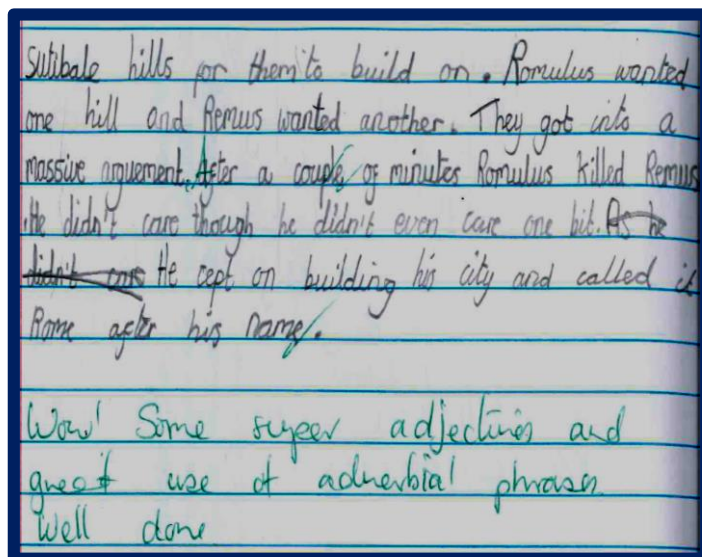 sutibale hills for them to build on. Romulus wanted
one hill and Remus wanted another. They got into a
massive arguement. After a couple of minutes Romulus killed Remus
.He didn't care though he didn't even care one bit. As he
didn't care He cept on building his city and called it
Rome after his name.
Wow! Some super adjectives and
great use of adverbial phrases
Well done